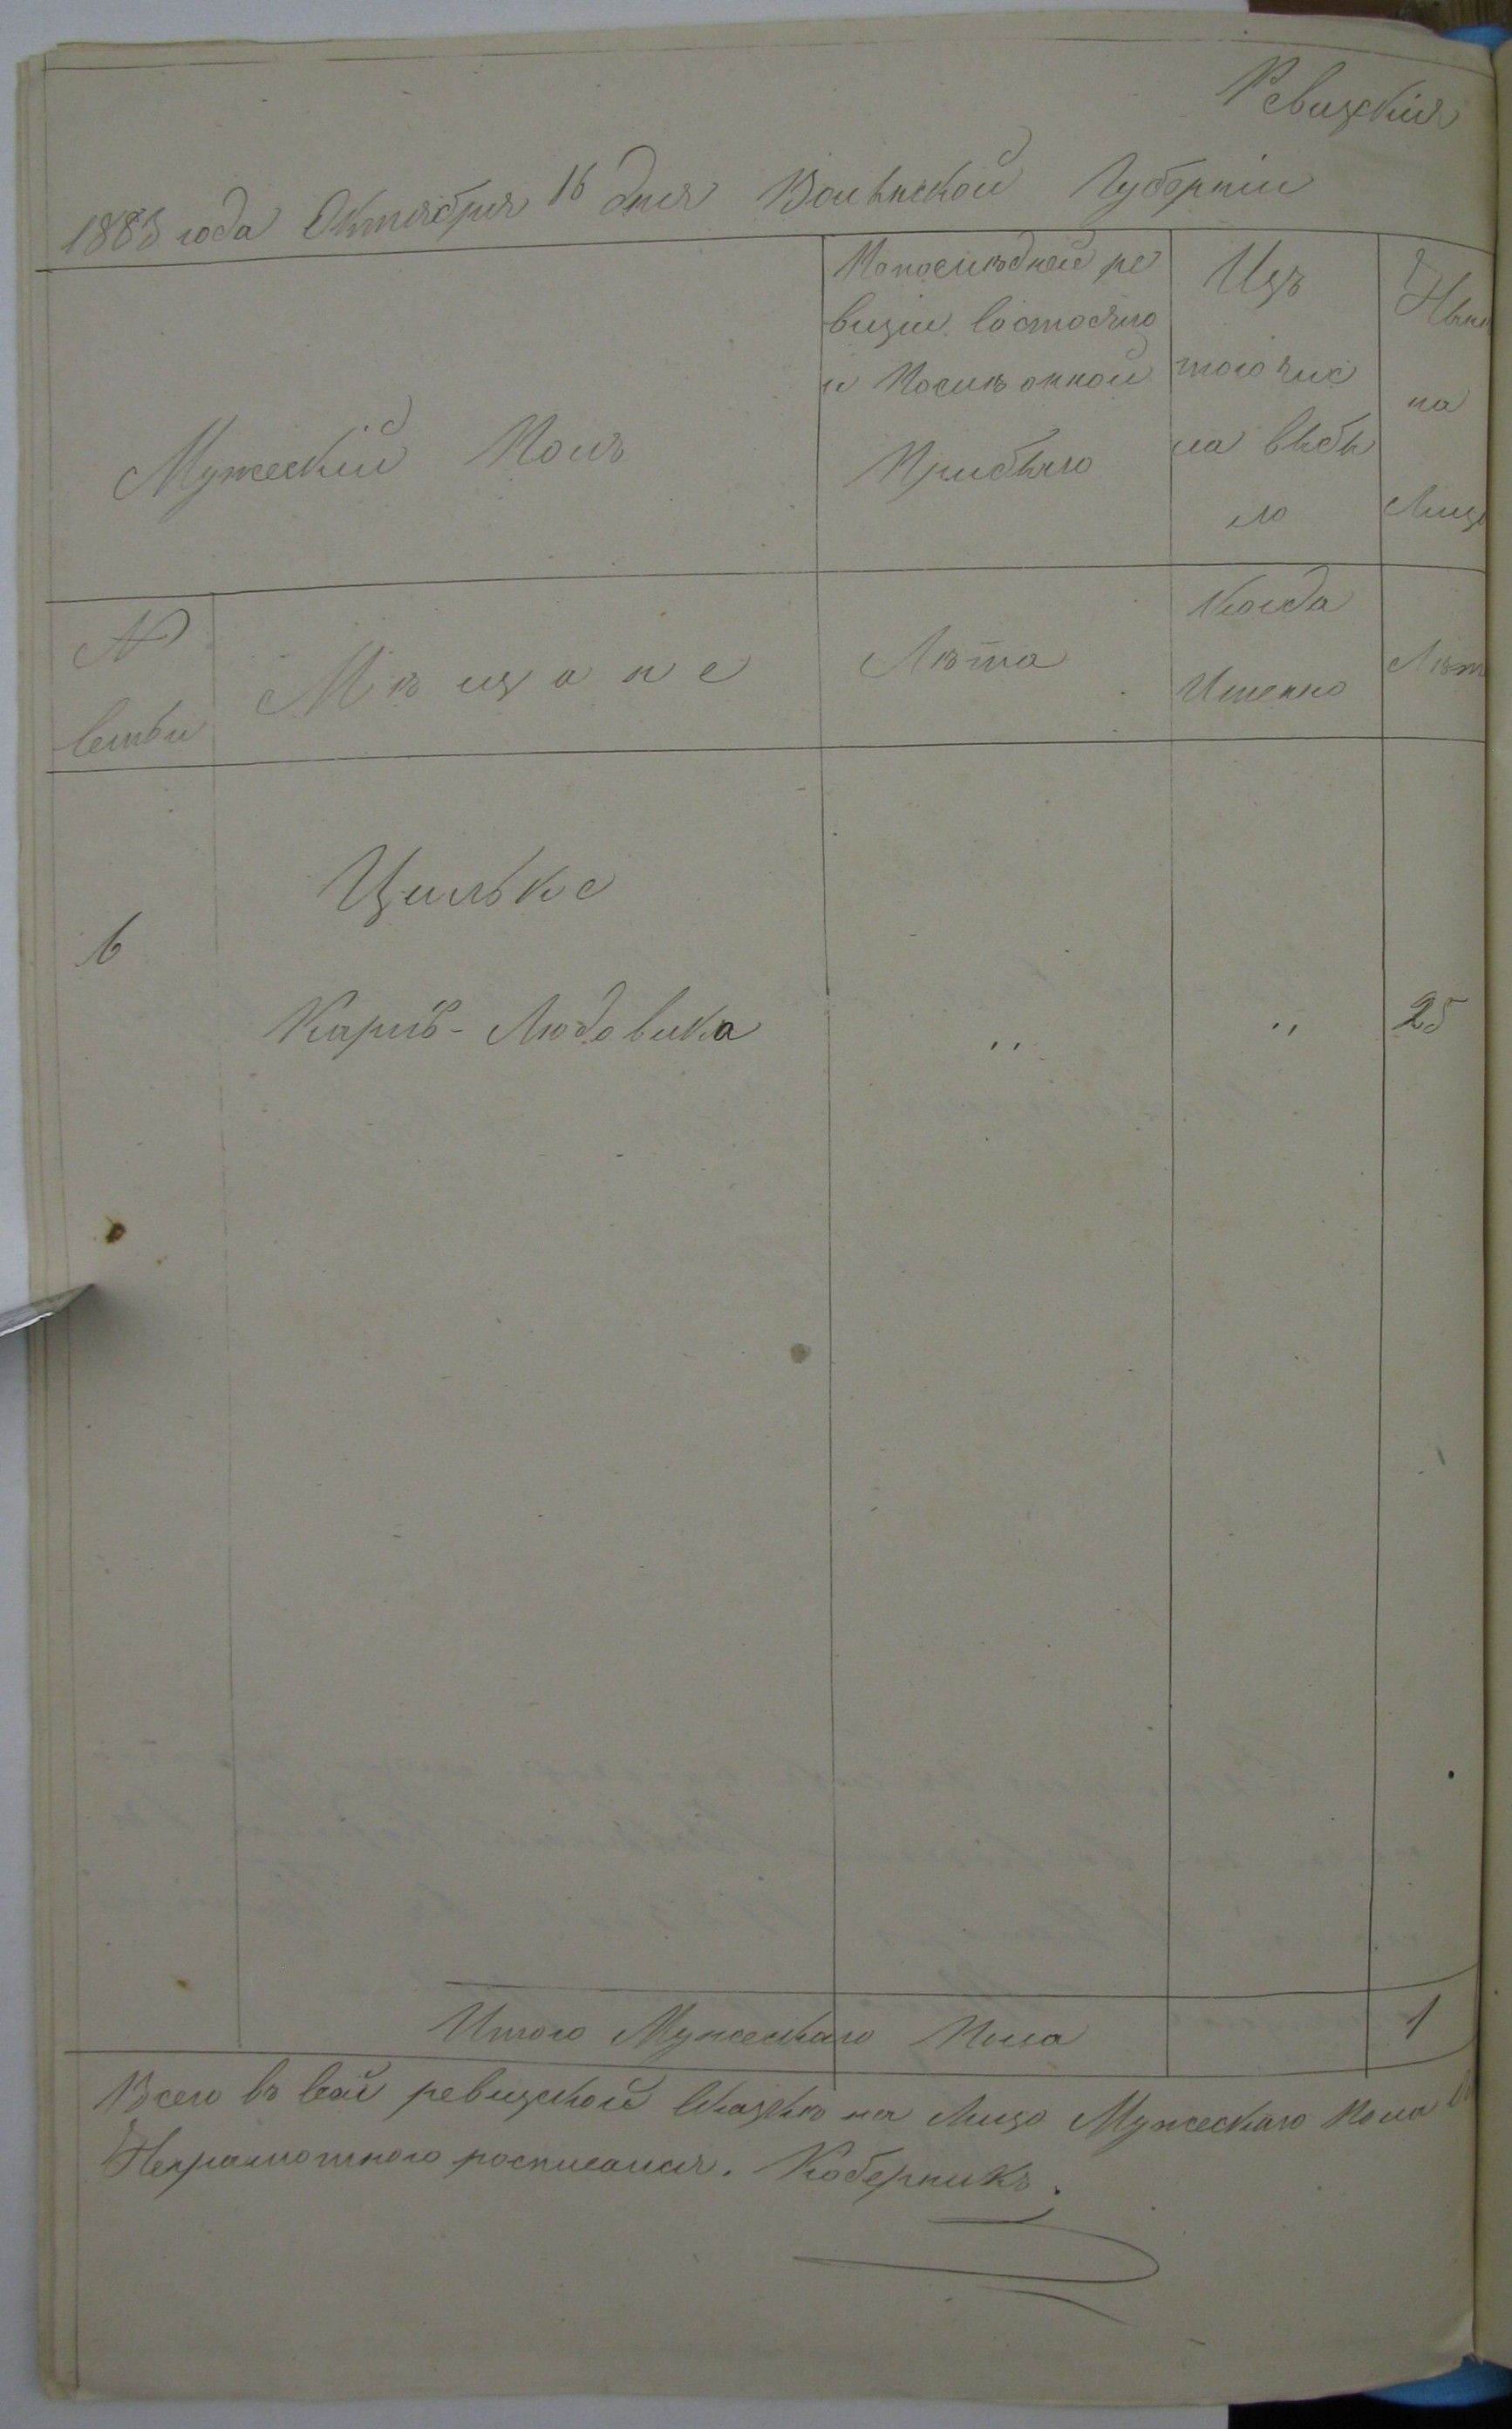 Ревизскія
1883 года Октября 16 дня Волынской Губерніи
Мужескій Полъ
По последней ре
визіи состояло
и После онной
Прибыло
Изъ
того чис
ла выбы
ло
Нын
на
Лицо
№
Семьи
Мѣщане
Лѣта
Когда
Именно
Лѣт
Цильке
6
Карлъ-Людовика
" " 25
Итого Мужескаго Пола 1
Всего въ сей ревизской сказкѣ на Лицо Мужескаго Пола
Неграмотного росписался. Коберникъ.